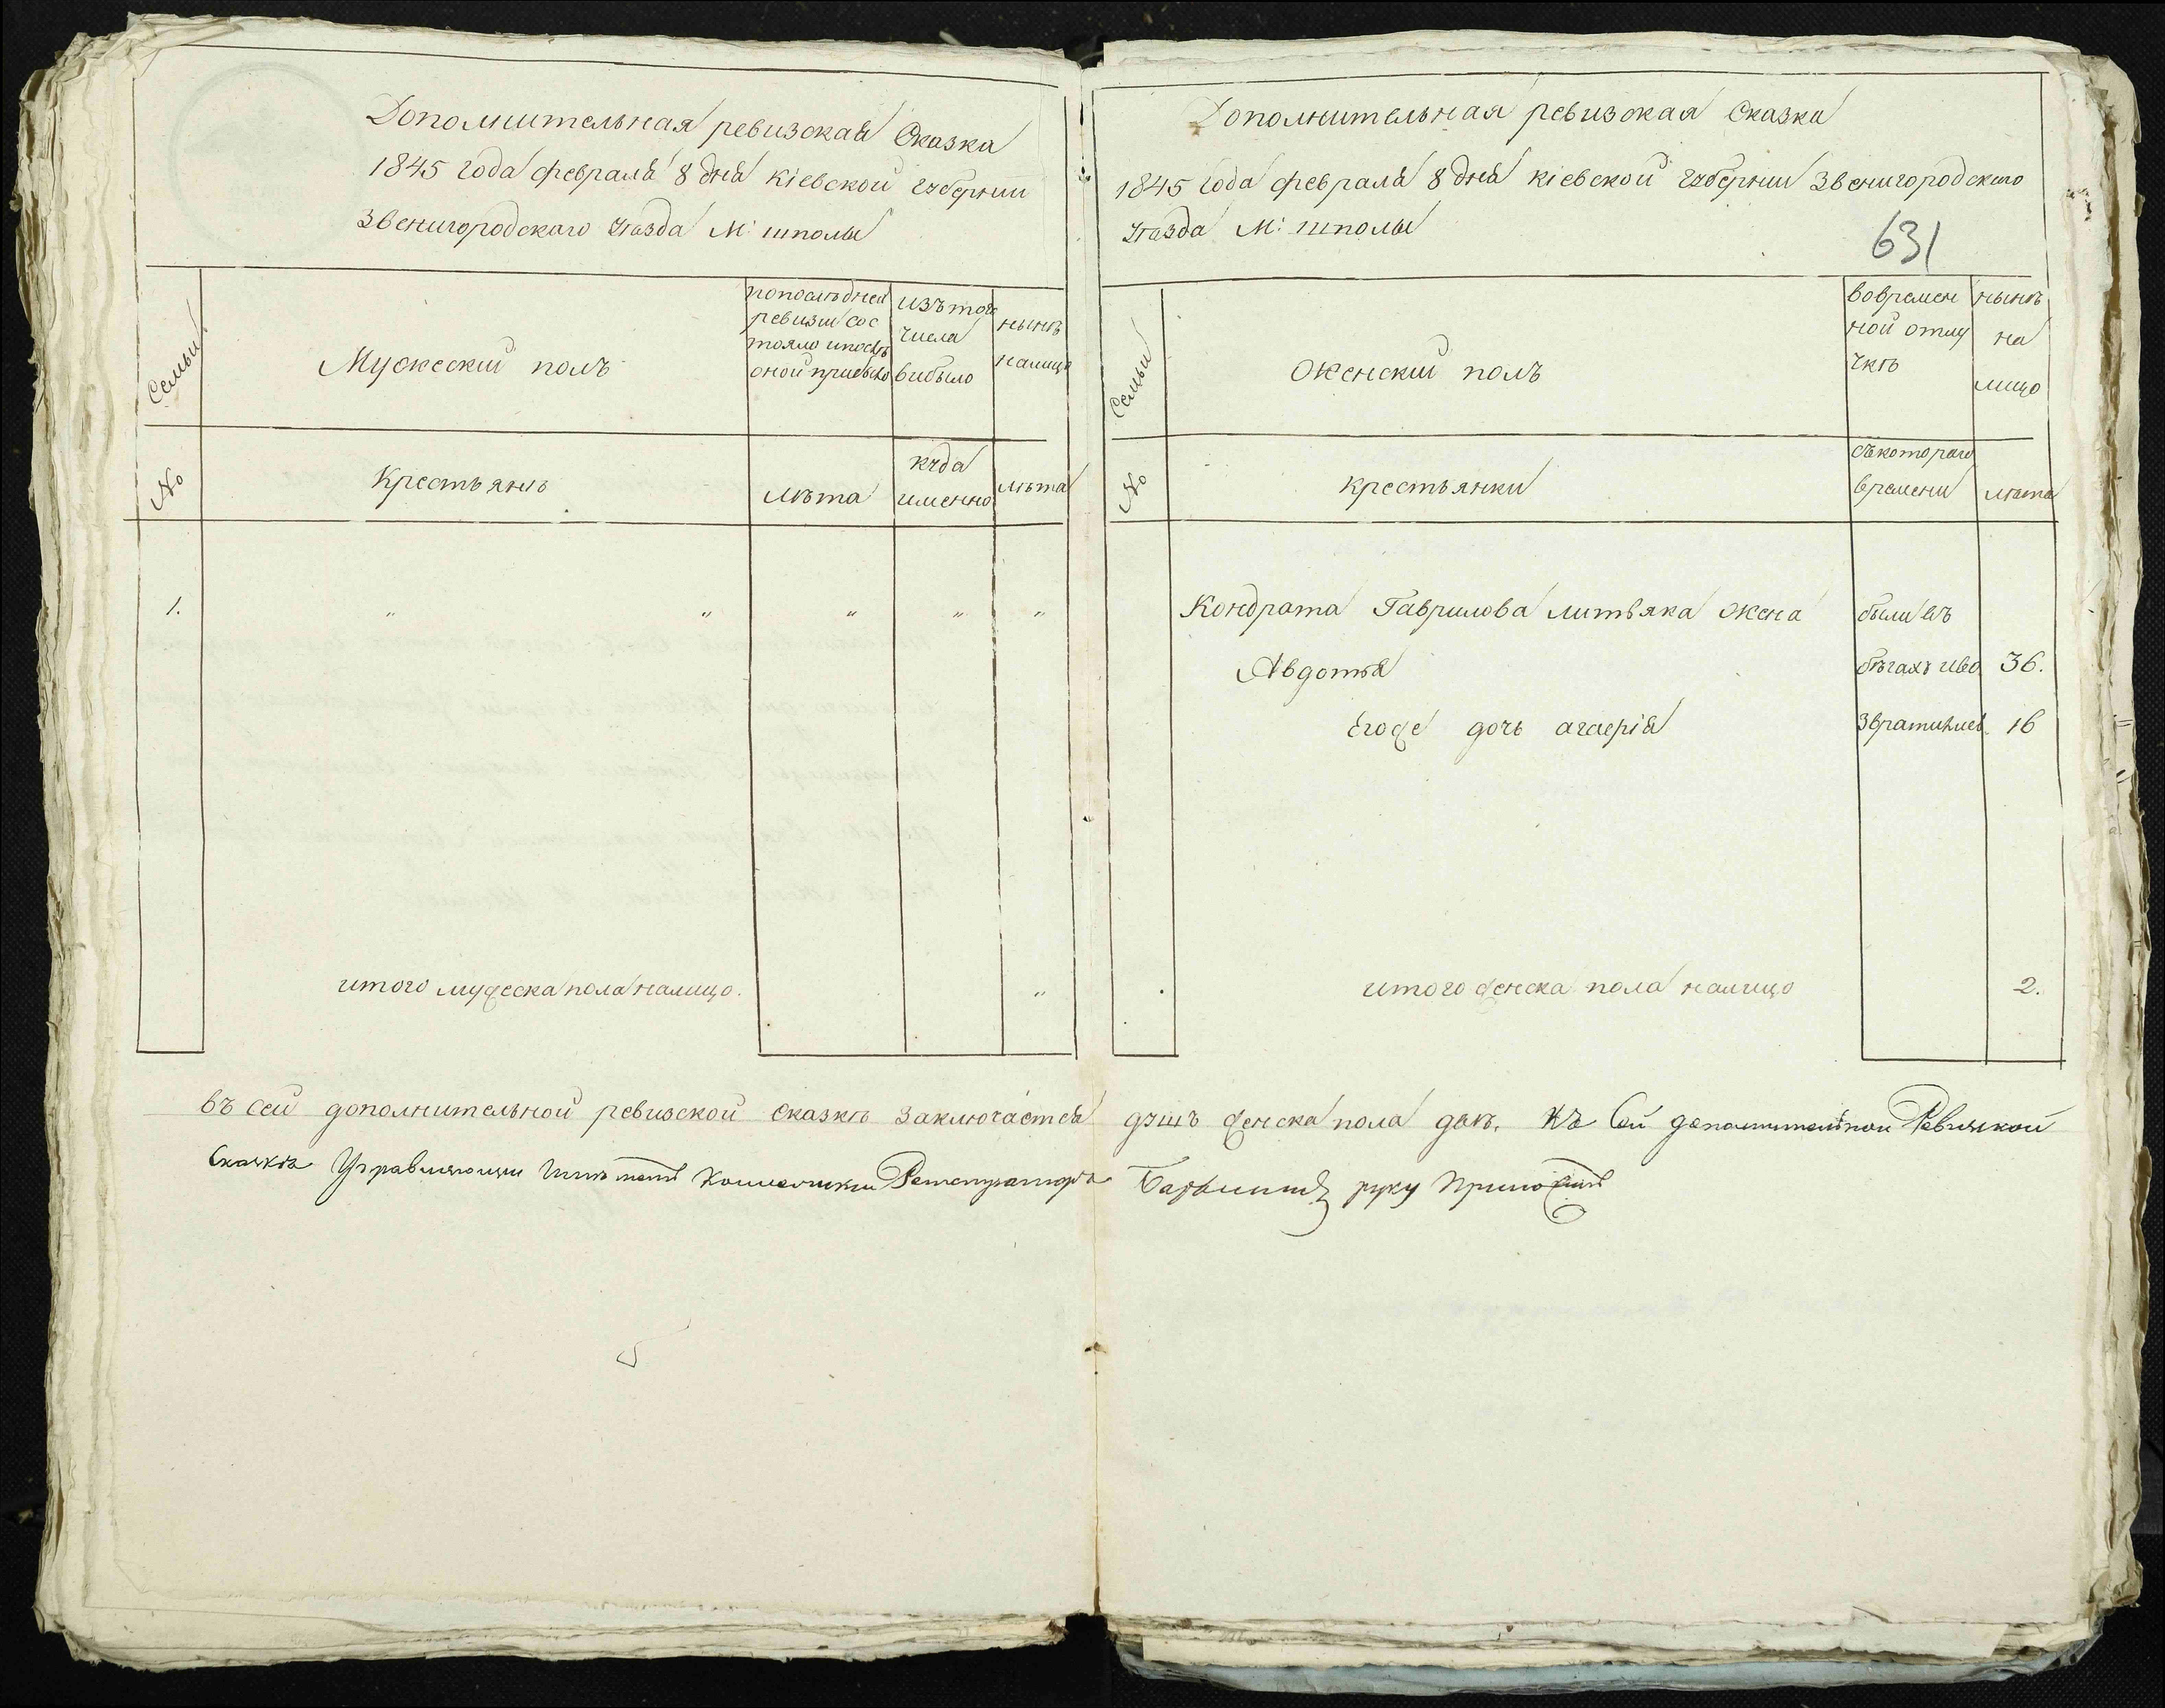 Дополнительная ревизская Сказка
1845 года февраля 8 дня Кіевской губерніи
Звенигородскаго Уѣзда М: шполы
Семьи
Мужескій полъ
попослѣдней
ревизіи сос
тояло ипослѣ
оной прибыло
изътого
числа
выбыло
нынѣ
налицо
№
Крестьянѣ
лѣта
куда
именно
лѣта
1. " " " " "
итого мужеска пола налицо. "
Дополнительная ревизская Сказка
1845 года февраля 8 дня кіевской губерніи Звенигородскаго
Уѣзда М: шполы
631
Семьи
Женскій полъ
вовремен
ной отлу
чкѣ
нынѣ
на
лицо
№
крестьянки
съкотораго
времени
лѣта
Кондрата Гаврилова литвяка жена были въ
Авдотья бѣгахъ иво 36.
Егоже дочь агафія звратились 16
итого женска пола налицо 2.
въ сей дополнительной ревизской сказкѣ заключается душъ женска пола двѣ. Къ Сей дополнительной Ревизской
Сказкѣ Управляющій Коллежскій Регистраторъ руку Приложилъ